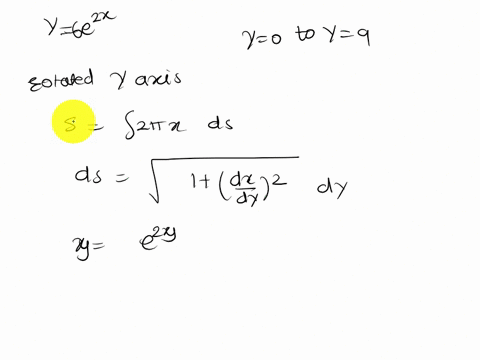 Y=6e^{2x}
y=0 to Y=9
rotated Y axis
S = ∫2πx ds
ds = √(1+(dx/dy)^2) dy
xy= e^{2xy}